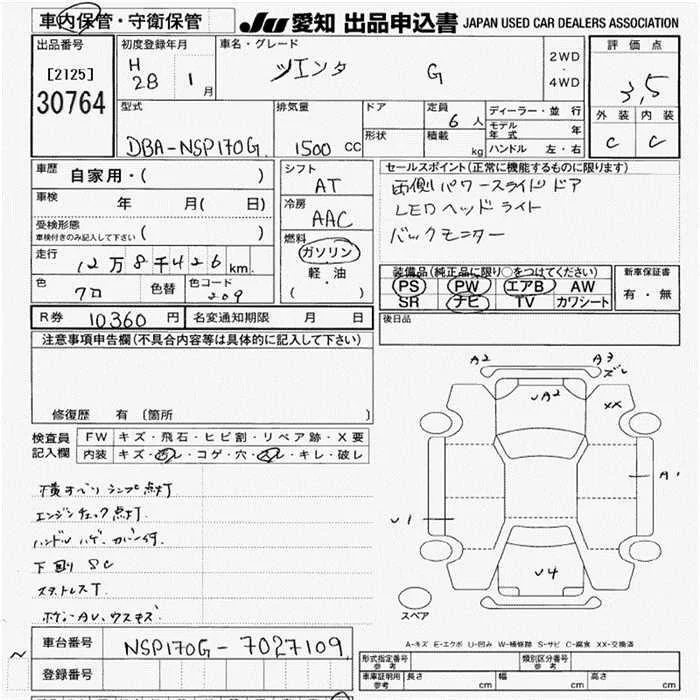 車内保管・守衛保管
JU 愛知 出品申込書 JAPAN USED CAR DEALERS ASSOCIATION
出品番号
[2125]
30764
初度登録年月
H
28 1月
車名・グレード
ツエンタ G
2WD
・
4WD
評価点
3,5
外装 内装
C C
型式
DBA-NSP170G.
排気量
1500 CC
ドア
形状
定員
6人
積載
kg
ディーラー・並行
モデル年式 年
ハンドル 左・右
車歴 自家用・( )
車検 年 月( 日)
受検形態
車検付きのみ記入して下さい ( )
走行
12万8千426km
色
クロ
色替
色コード
209
シフト
AT
冷房
AAC
燃料
ガソリン
軽・油
( )
セールスポイント(正常に機能するものに限ります)
両側パワースライドドア
LEDヘッドライト
バックモニター
装備品(純正品に限り○をつけてください)
PS PW エアB AW
SR ナビ TV カワシート
新車保証書
有・無
R券 10,360 円
名変通知期限 月 日
後日品
注意事項申告欄(不具合内容等は具体的に記入して下さい)
修復歴 有 〔箇所 〕
検査員
記入欄
FW キズ・飛石・ヒビ割・リペア跡・X要
内装 キズ・汚レ・コゲ・穴・スレ・キレ・破レ
横すべりランプ点灯
エンジンチェック点灯.
ハンドルハゲ、カバー付.
下廻り SC
スタットレスT
ボディーAU、ウスキズ
A2
A3
ズレ
UA2
XX
A1
U1
U4
スペア
A-キズ E-エクボ U-凹み W-補修跡 S-サビ C-腐食 XX-交換済
車台番号
NSP170G-7027109
登録番号
型式指定番号
参考
類別区分番号
参考
車庫証明用
参考
長さ cm
幅 cm
高さ cm